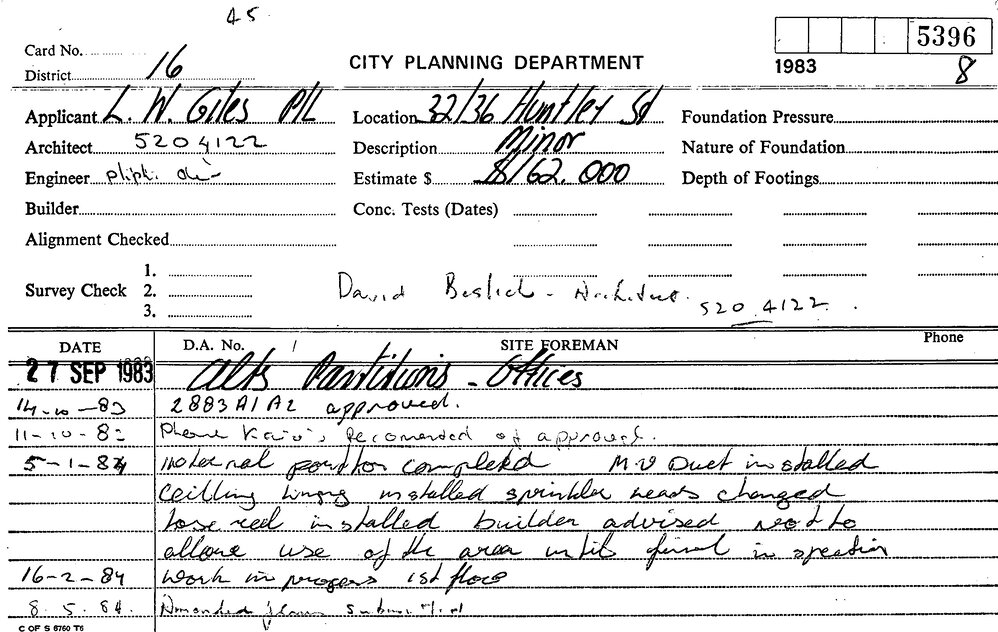 45
5396
1983
8
Card No.
District 16
CITY PLANNING DEPARTMENT
Applicant L. W. Giles P/L
Location 32/36 Huntley St
Foundation Pressure
Architect 5204122
Description Minor
Nature of Foundation
Engineer
Estimate $ $162.000
Depth of Footings
Builder
Conc. Tests (Dates)
Alignment Checked
Survey Check
1.
2.
3.
David - Architect. 520 4122
DATE
D.A. No.
SITE FOREMAN
Phone
27 SEP 1983 Alts Partitions - Offices
14-10-83 2883 A1 A2 approved.
11-10-83 Phone of approval.
5-1-84 completed M.V Duct installed
Ceilling installed sprinkler heads changed
hose reel installed builder advised not to
allowe use of the area until final inspection
16-2-84 work in progess 1st floor
8.5.84. Amended plans
C OF S 6760 T6